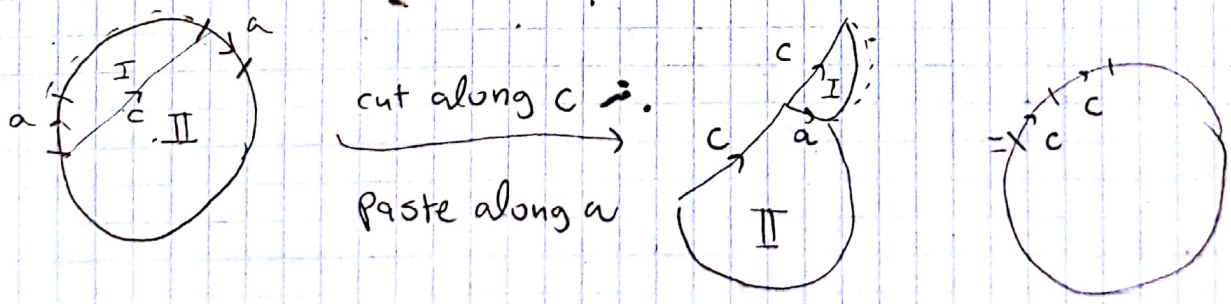 a
I
a
c
II
cut along c
paste along a
c
I
a
c
II
=
c
c